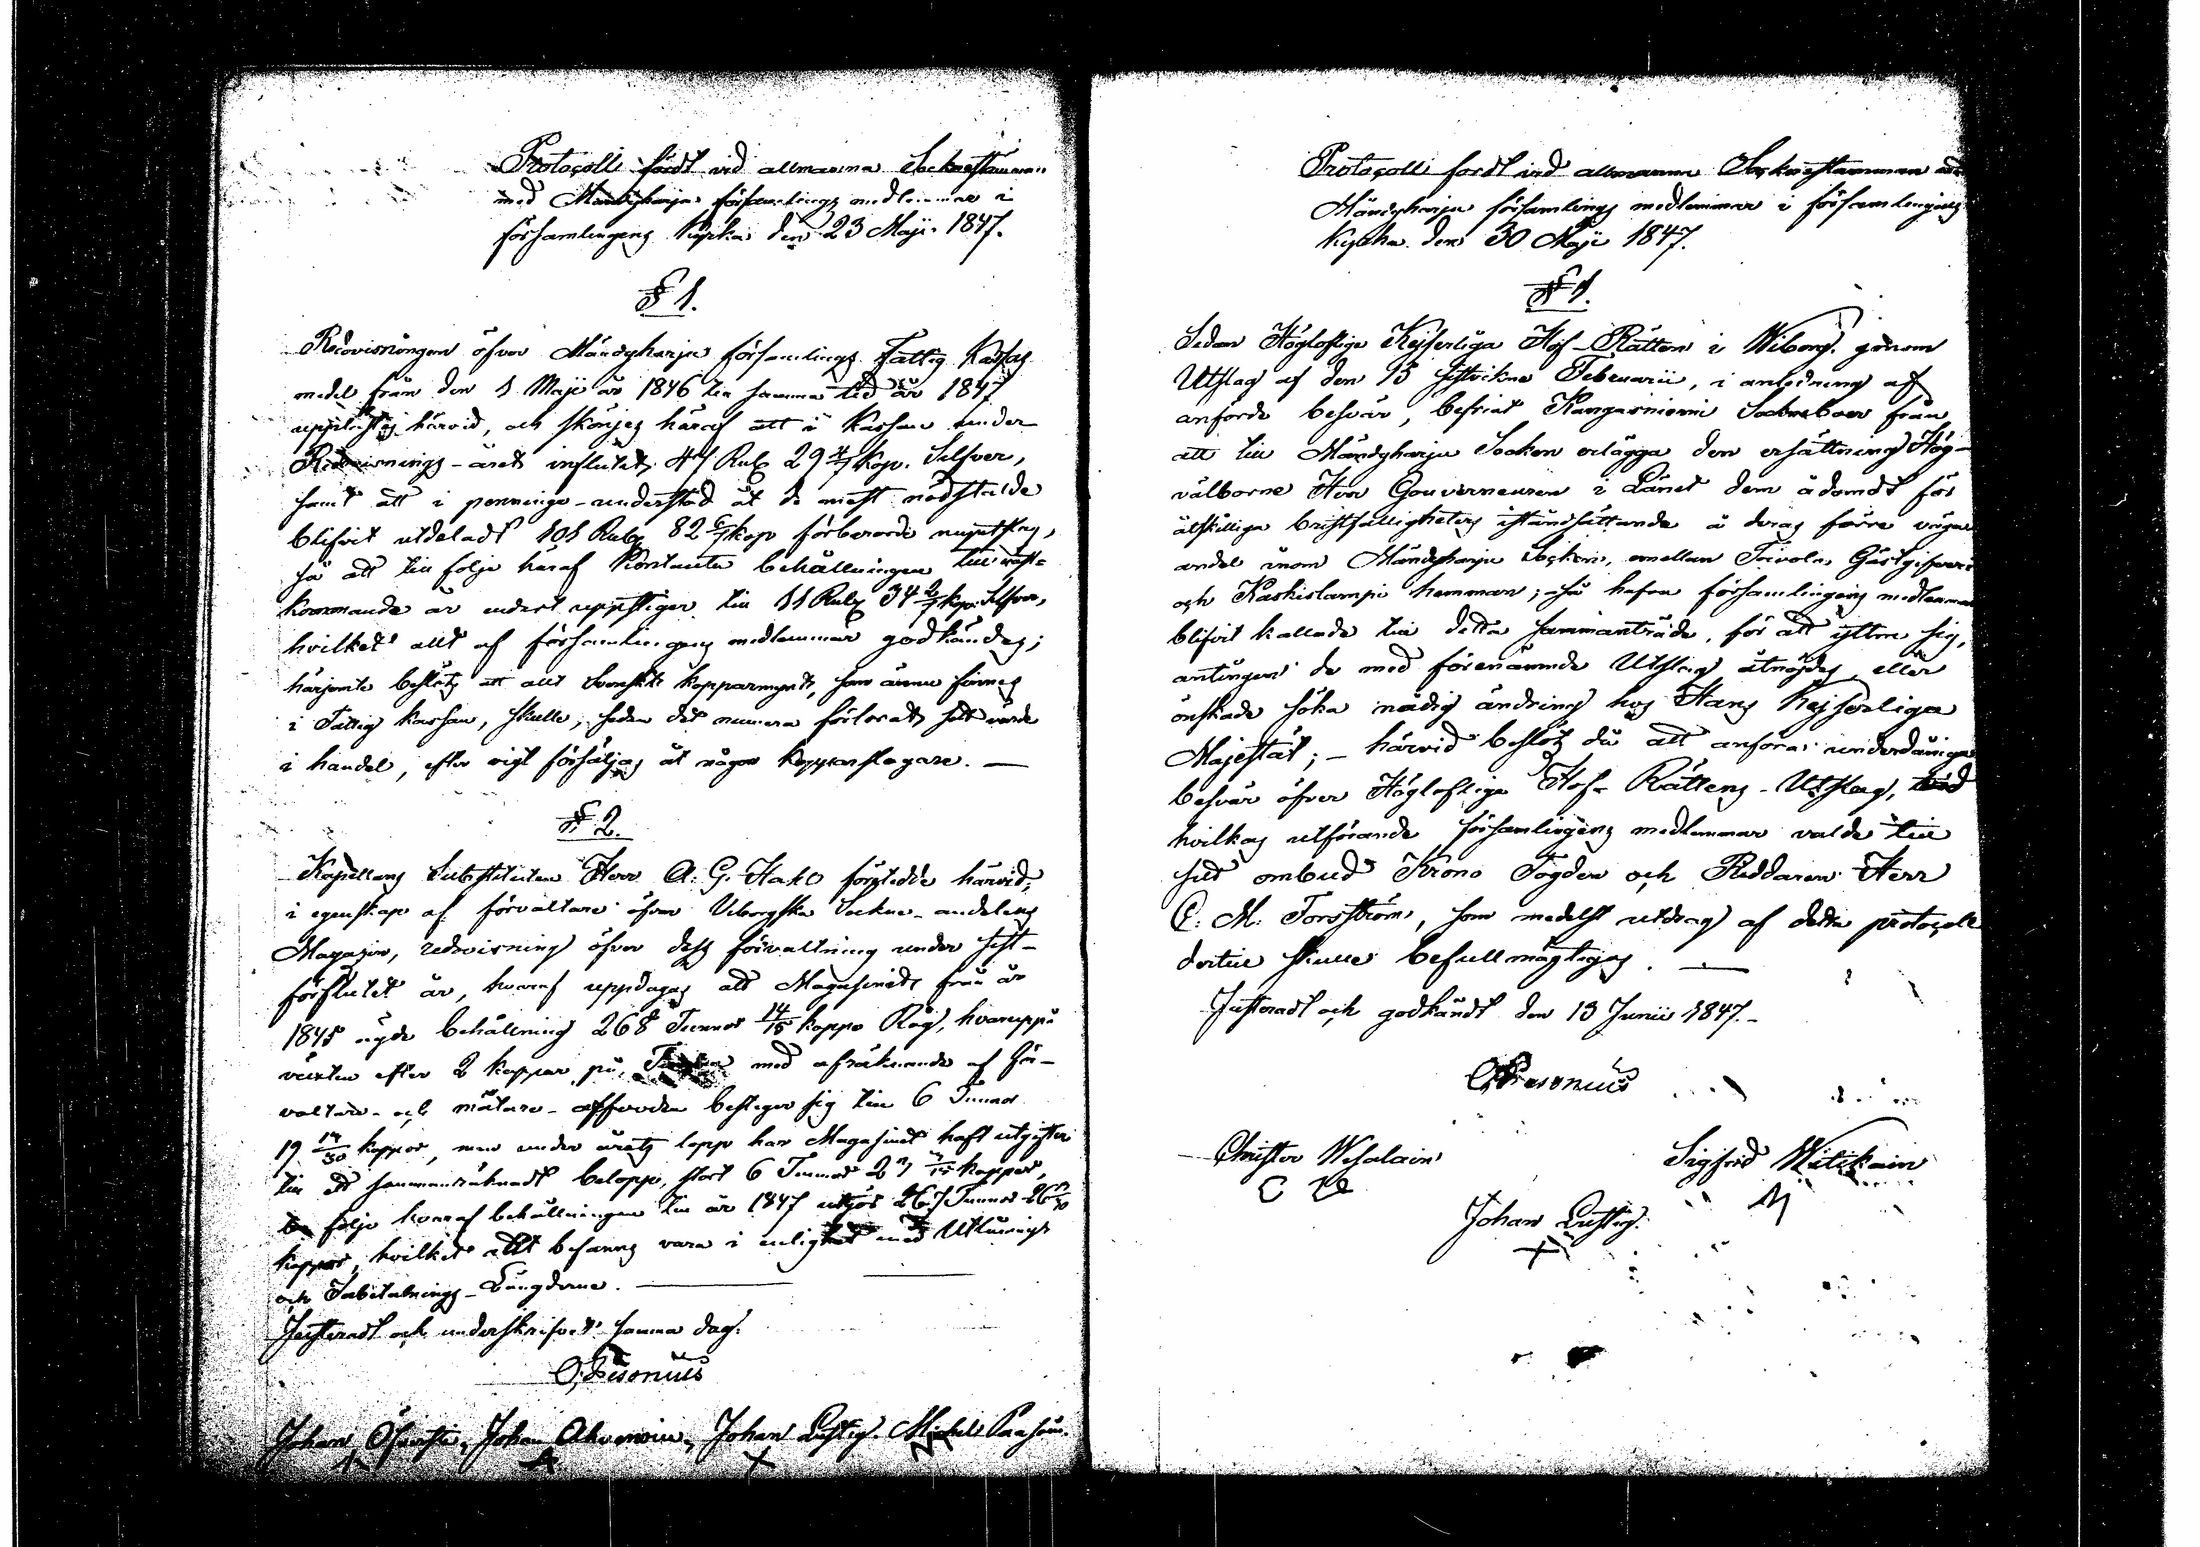 Protocoll fördt vid allmänna Sockenstämman
med Mändyharju församlings medlemmar i
församlingens Kyrka den 23 Maji 1847.
§ 1.
Redovisningen öfver Mändyharju församlings Fattig Kassas
medel från den 1 Maji år 1846 till samma tid år 1847
upplästes härvid, och skönjes häraf att i Kassan under
Redovisnings-året influtit 47 Rub 29 4/7 Kop. Silfver,
samt att i penninge-understöd åt de mest nödstälde
blifvit utdeladt 101 Rub 82 6/7 kop förberörde myntslag,
så att till följe häraf Kontanta behållningen till näst-
kommande år endast uppstiger till 11 Rub 34 2/7 kop. Silfver,
hvilket allt af församlingens medlemmar godkändes;
härjemte beslöts att allt Svenskt kopparmynt, som ännu finnes
i Fattig kassan, skulle, sedan det numera förlorat sitt värde
i handel, efter vigt försäljas åt någon Kopparslagare. —
§ 2.
Kapellans Substituten Herr A: G. Hake företedde härvid,
i egenskap af förvaltare öfver Wiborgska Sockne-andelens
Magazin, redovisning öfver dess förvaltning under sist-
förflutet år, hvaraf uppdagas att Magasinet från år
1845 ägde behållning 268 Tunnor 14/15 kappe Råg, hvaruppå
växten efter 2 kappar på Tunnan med afräknande af för-
valtare- och mätare-arfvoden bestiger sig till 6 Tunnor
19 17/30 kappar, men under årets lopp har Magasinet haft utgifter
till ett sammanräknadt belopp, stort 6 Tunnor 27 kappar,
till följe hvaraf behållningen till år 1847 utgör 267 Tunnor 26
kappar, hvilket allt befanns vara i enlighet med Utlånings
och Inbetalnings-Längderne. —
Justeradt och underskrifvet samma dag.
O. Pesonius
Johan Johan Ahvenain, Johan Lustig. Michel Paasoin.
X
Protocoll fördt vid allmänna Sockenstämman med
Mändyharju församlings medlemmar i församlingens
Kyrka den 30 Maji 1847.
§ 1.
Sedan Höglofliga Kejserliga Hof-Rätten i Wiborg genom
Utslag af den 15 sistvikne Februarii, i anledning af
anförde besvär, befriat Kangasniemi Sockneboer från
att till Mändyharju Socken erlägga den ersättning Hög-
välborne Herr Gouverneuren i Länet dem ådömdt för
åtskilliga bristfälligheters iståndsättande å deras förre vägar
andel inom Mändyharju Socken, emellan Toivola Gästgifveri
och Kaskislampi hemman; så hafva församlingens medlemmar
blifvit kallade till detta sammanträde, för att yttra sig,
antingen de med förenämnde Utslag åtnöjdes, eller
önskade söka nådig ändring hos Hans Kejserliga
Majestät; — härvid beslöts då att anföra underdåniga
besvär öfver Höglofliga Hof-Rättens-Utslag, vid
hvilkas utförande församlingens medlemmar valde till
sitt ombud Krono Fogden och Riddaren Herr
C: M: Forsström, som medelst utdrag af detta protocoll
dertill skulle befullmägtigas. —
Justeradt och godkändt den 13 Junii 1847. —
O. Pesonius
Christer Wesalain Sigfrid Witikain
Johan Lustig.
X